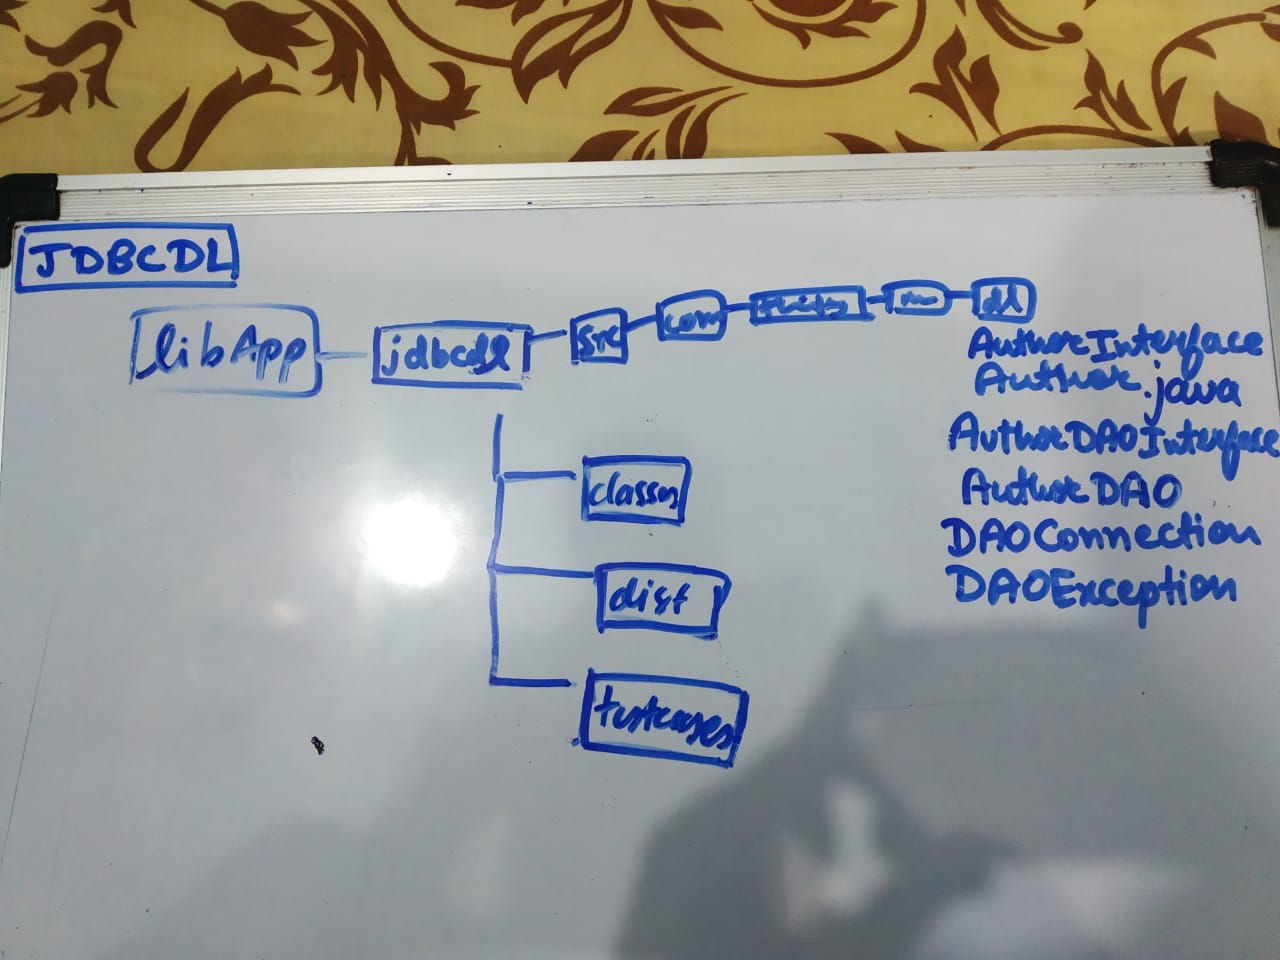 JDBCDL
libApp
jdbcdl
src
com
dl
AuthorInterface
Author.java
AuthorDAOInterface
AuthorDAO
DAOConnection
DAOException
classes
dist
testcases